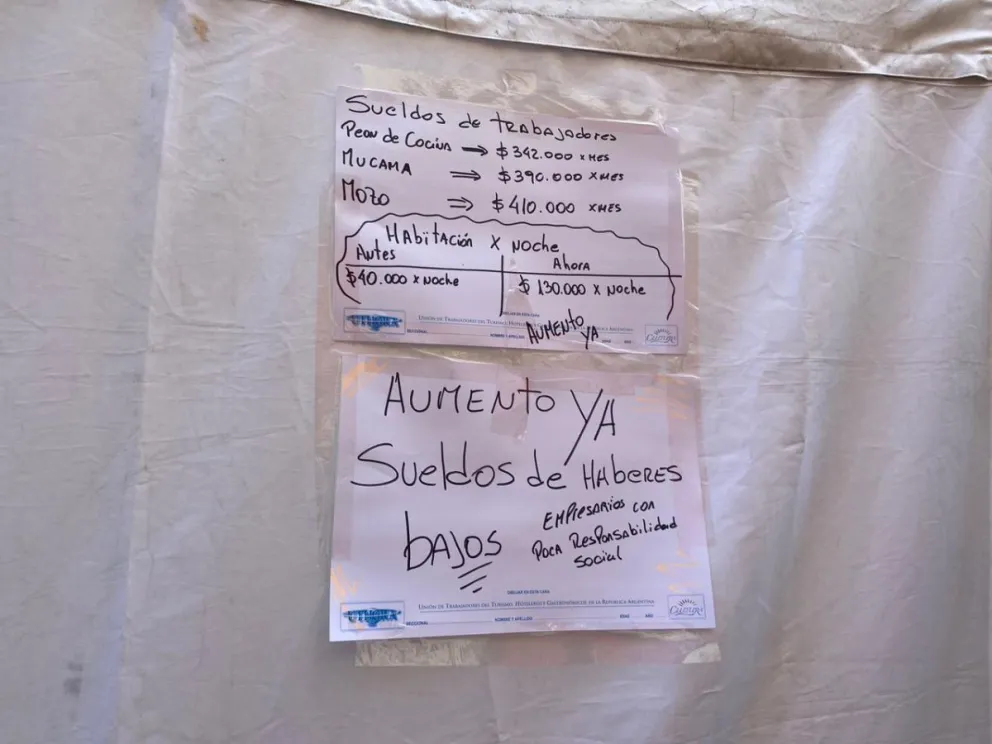 Sueldos de trabajadores
Peon de Cocina → $342.000 x mes
Mucama ⇒ $390.000 x mes
Mozo ⇒ $410.000 x mes
Habitación x Noche
Antes Ahora
$40.000 x Noche $130.000 x Noche
DIBUJAR EN ESTA CARA
Aumento
Ya
UTHGRA
Unión de Trabajadores del Turismo, Hoteleros y Gastronómicos de la República Argentina
SECCIONAL NOMBRE Y APELLIDO EDAD AÑO
Aumento Ya
Sueldos de Haberes
bajos
Empresarios con
poca Responsabilidad
social
DIBUJAR EN ESTA CARA
UTHGRA
Unión de Trabajadores del Turismo, Hoteleros y Gastronómicos de la República Argentina
SECCIONAL NOMBRE Y APELLIDO EDAD AÑO